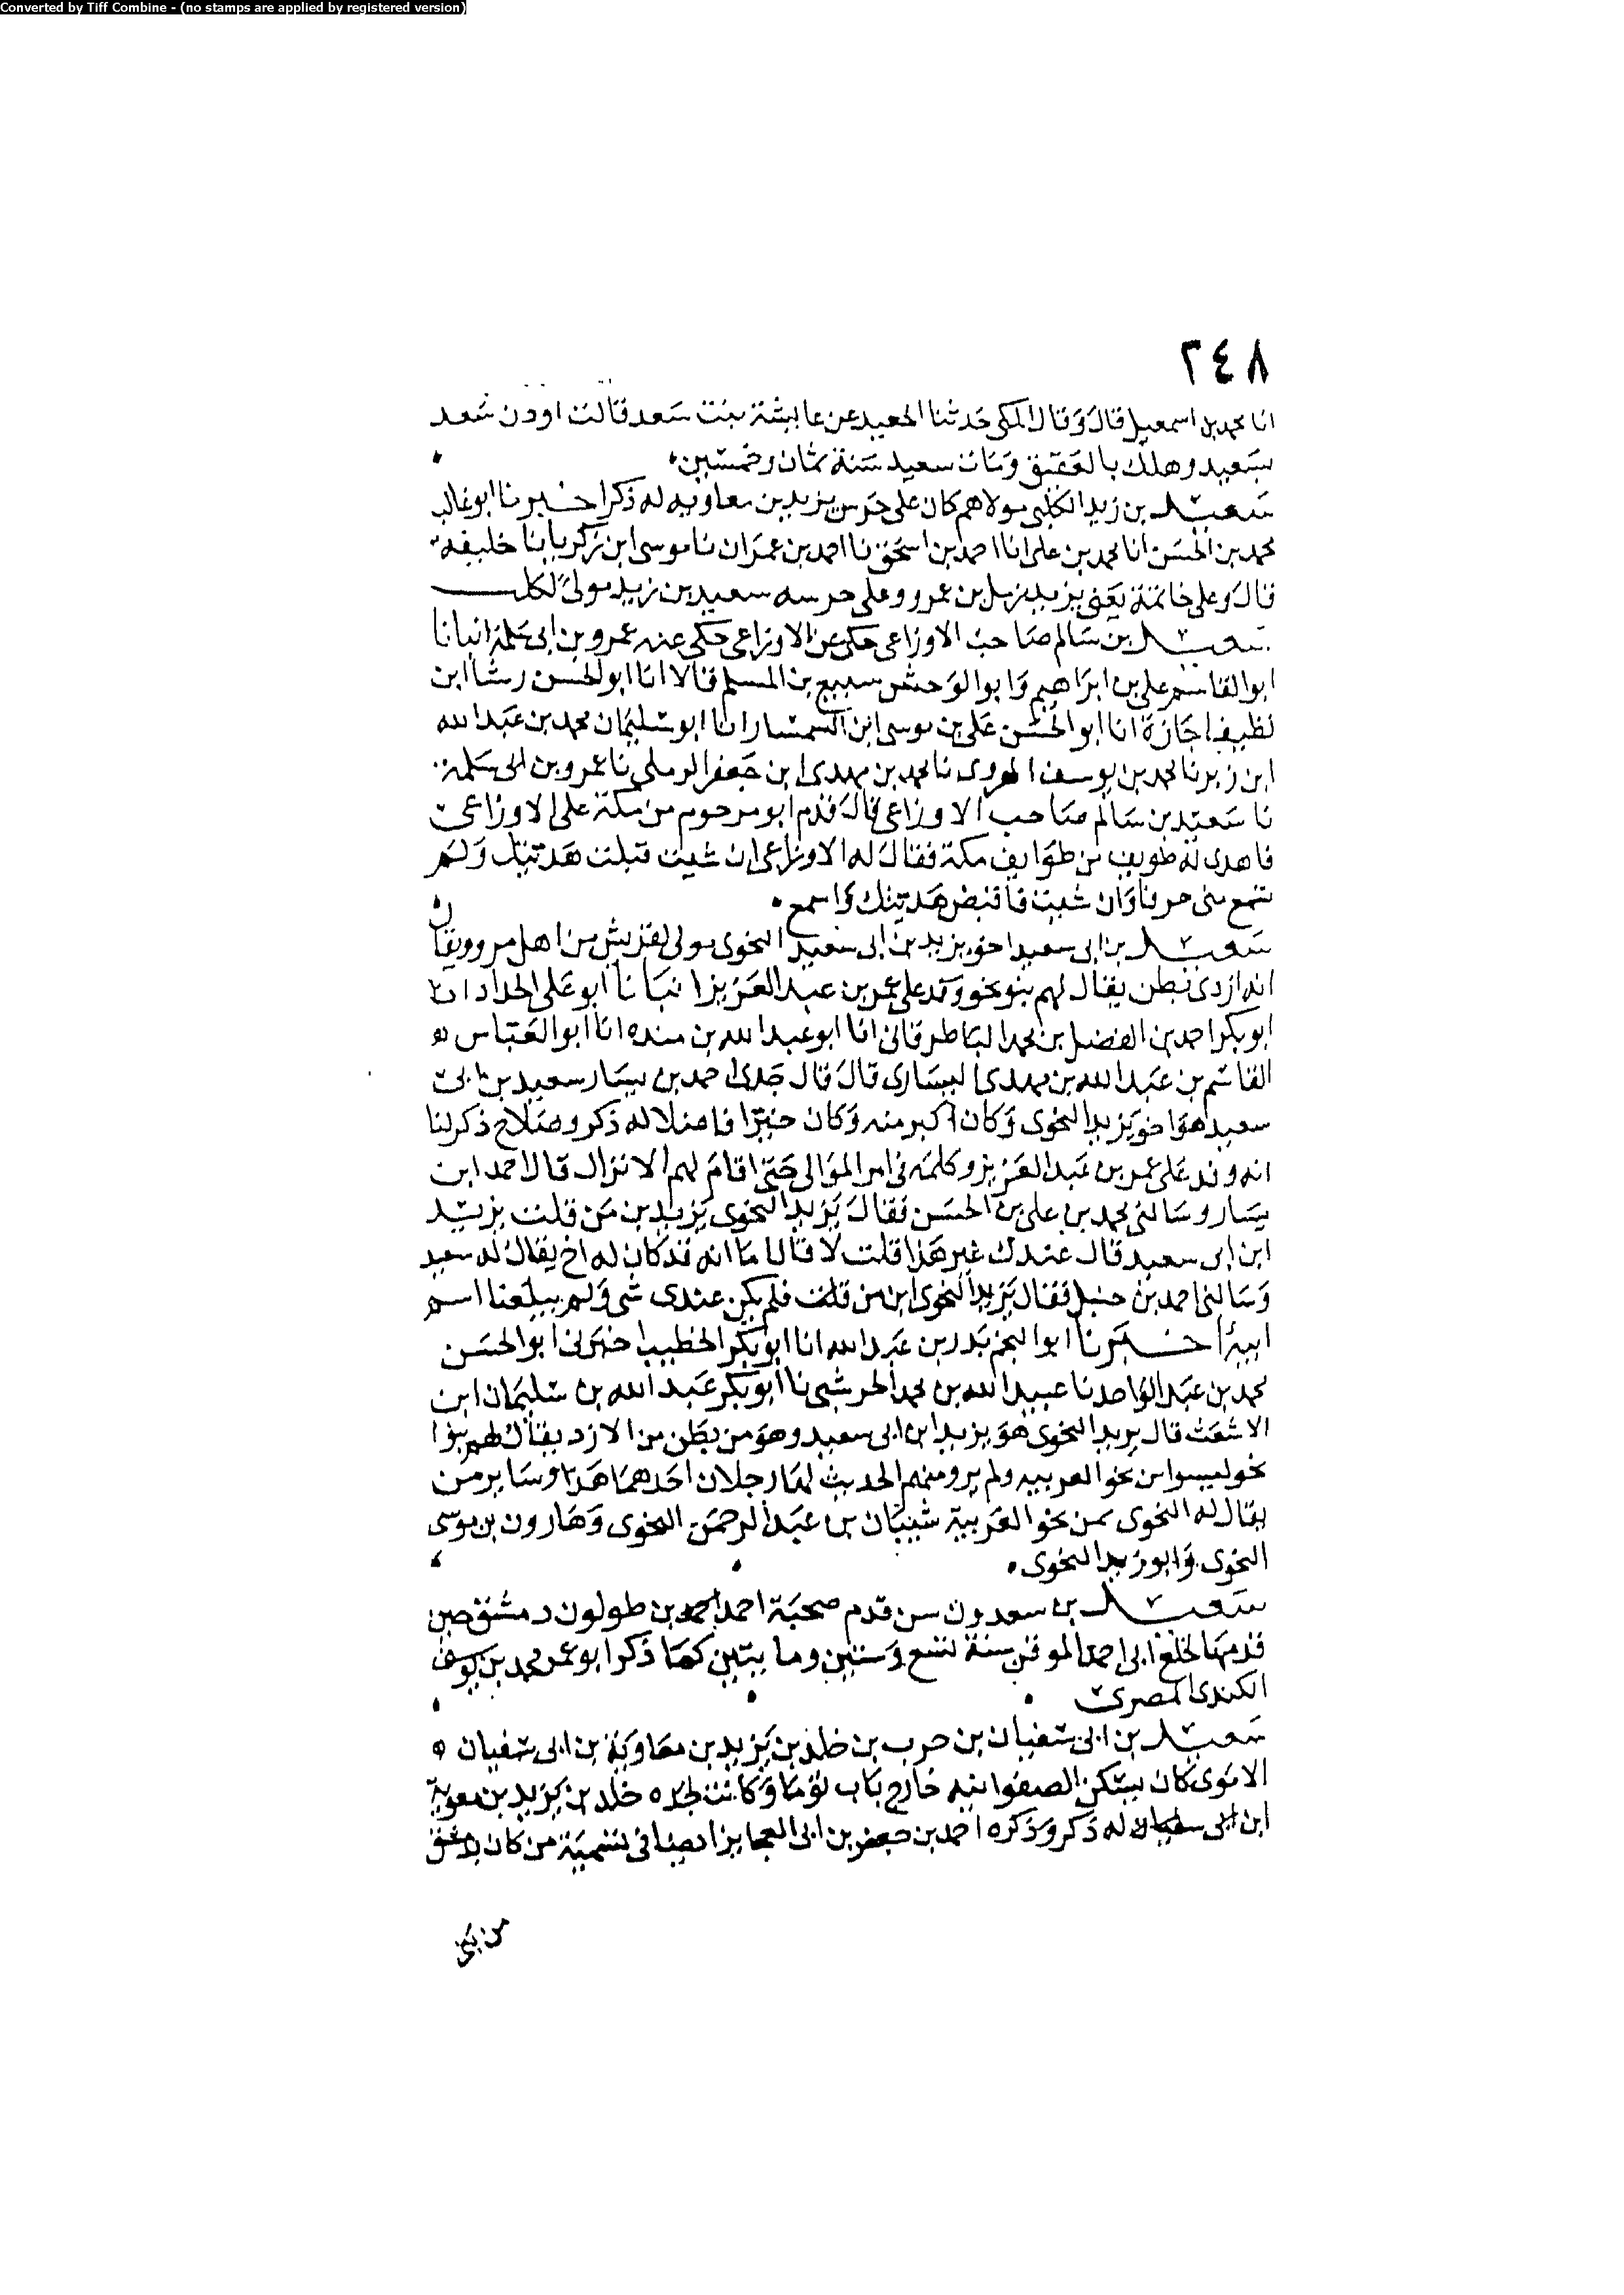 Converted by Tiff Combine - (no stamps are applied by registered version)
٢٤٨
انا محمد بن اسمعيل قال وقال المكى حدثنا الجعيد عن عايشة بنت سعد قالت اوذن سعد
بسعيد وهلك بالعقيق ومات سعيد سنة ثمان وخمسين
سعيد بن زيد الكلبى مولاهم كان على حرس يزيد بن معاويه له ذكر اخبرنا ابو غالب
محمد بن الحسن انا محمد بن على انا احمد بن اسحق نا احمد بن عمران نا موسى ابن زكريا نا خليفه
قال وعلى خاتمة يعنى يزيد بن عمرو وعلى حرسه سعيد بن زيد مولى لكلب
سعيد بن سالم صاحب الاوزاعى حكى عن الاوزاعى حكى عنه عمرو بن ابى سلمة انبانا
ابو القاسم على بن ابراهيم وابو الوحش سبيع بن المسلم قالا انا ابو الحسن رشا ابن
نظيف اجازة انا ابو الحسن على بن موسى ابن السمسار انا ابو سليمان محمد بن عبد الله
ابن زبر نا محمد بن يوسف الهروى نا محمد بن مهدى ابن جعفر الرملى نا عمرو بن ابى سلمة
نا سعيد بن سالم صاحب الاوزاعى قال قدم ابو مرحوم من مكة على الاوزاعى
فاهدى له طرايف من طوايف مكة فقال له الاوزاعى ان شيت قبلت هديتك ولم
تسمع منى حرفا وان شيت فاقبض هديتك واسمع
سعيد بن ابى سعيد اخو يزيد بن ابى سعيد النحوى مولى لقريش من اهل مرو ويقال
انه ازدى من بطن يقال لهم بنو نحو وفد على عمر بن عبد العزيز انبانا ابو على الحداد انا
ابو بكر احمد بن الفضل بن محمد الباطرقانى انا ابو عبد الله بن منده انا ابو العباس
القاسم بن عبد الله بن مهدى اليسارى قال قال جدى احمد بن يسار سعيد بن ابى
سعيد هو اخو يزيد النحوى وكان اكبر منه وكان خيرا فاضلا له ذكر وصلاح ذكر لنا
انه وفد على عمر بن عبد العزيز وكلمه فى امر الموالى حتى اقام لهم الانزال قال احمد ابن
يسار وسالنى محمد بن على بن الحسن فقال يزيد النحوى يزيد بن من قلت يزيد
ابن ابى سعيد قال عندك غير هذا قلت لا قال اما انه قد كان له اخ يقال له سعيد
وسالنى احمد بن حنبل فقال يزيد النحوى ابن من قلت فلم يكن عندى شى ولم يبلغنا اسم
ابيه اخبرنا ابو النجم بدر بن عبد الله انا ابو بكر الخطيب اخبرنى ابو الحسن
محمد بن عبد الواحد نا عبيد الله بن محمد الحرشى نا ابو بكر عبد الله بن سليمان ابن
الاشعث قال يزيد النحوى هو يزيد ابن ابى سعيد وهو من بطن من الازد يقال لهم بنوا
نحو ليسوا من نحو العربيه ولم يرو منهم الحديث الا رجلان احدهما هذا وساير من
يقال له النحوى من نحو العربية شيبان بن عبد الرحمن النحوى وهارون بن موسى
النحوى وابو زيد النحوى
سعيد بن سعدون من قدم صحبة احمد بن طولون دمشق حين
قدمها لخلع ابى احمد الموفق سنة تسع وستين وما يتين كما ذكر ابو عمر محمد بن يوسف
الكندى المصرى
سعيد بن ابى سفيان بن حرب بن خلد بن يزيد بن معاوية بن ابى سفيان
الاموى كان يسكن الصفوانيه خارج باب توما وكانت لجده خلد بن يزيد بن معوية
ابن ابى سفيان له ذكر وذكره احمد بن حميد بن ابى العجايز ايضا فى تسمية من كان بدمشق
من بنى